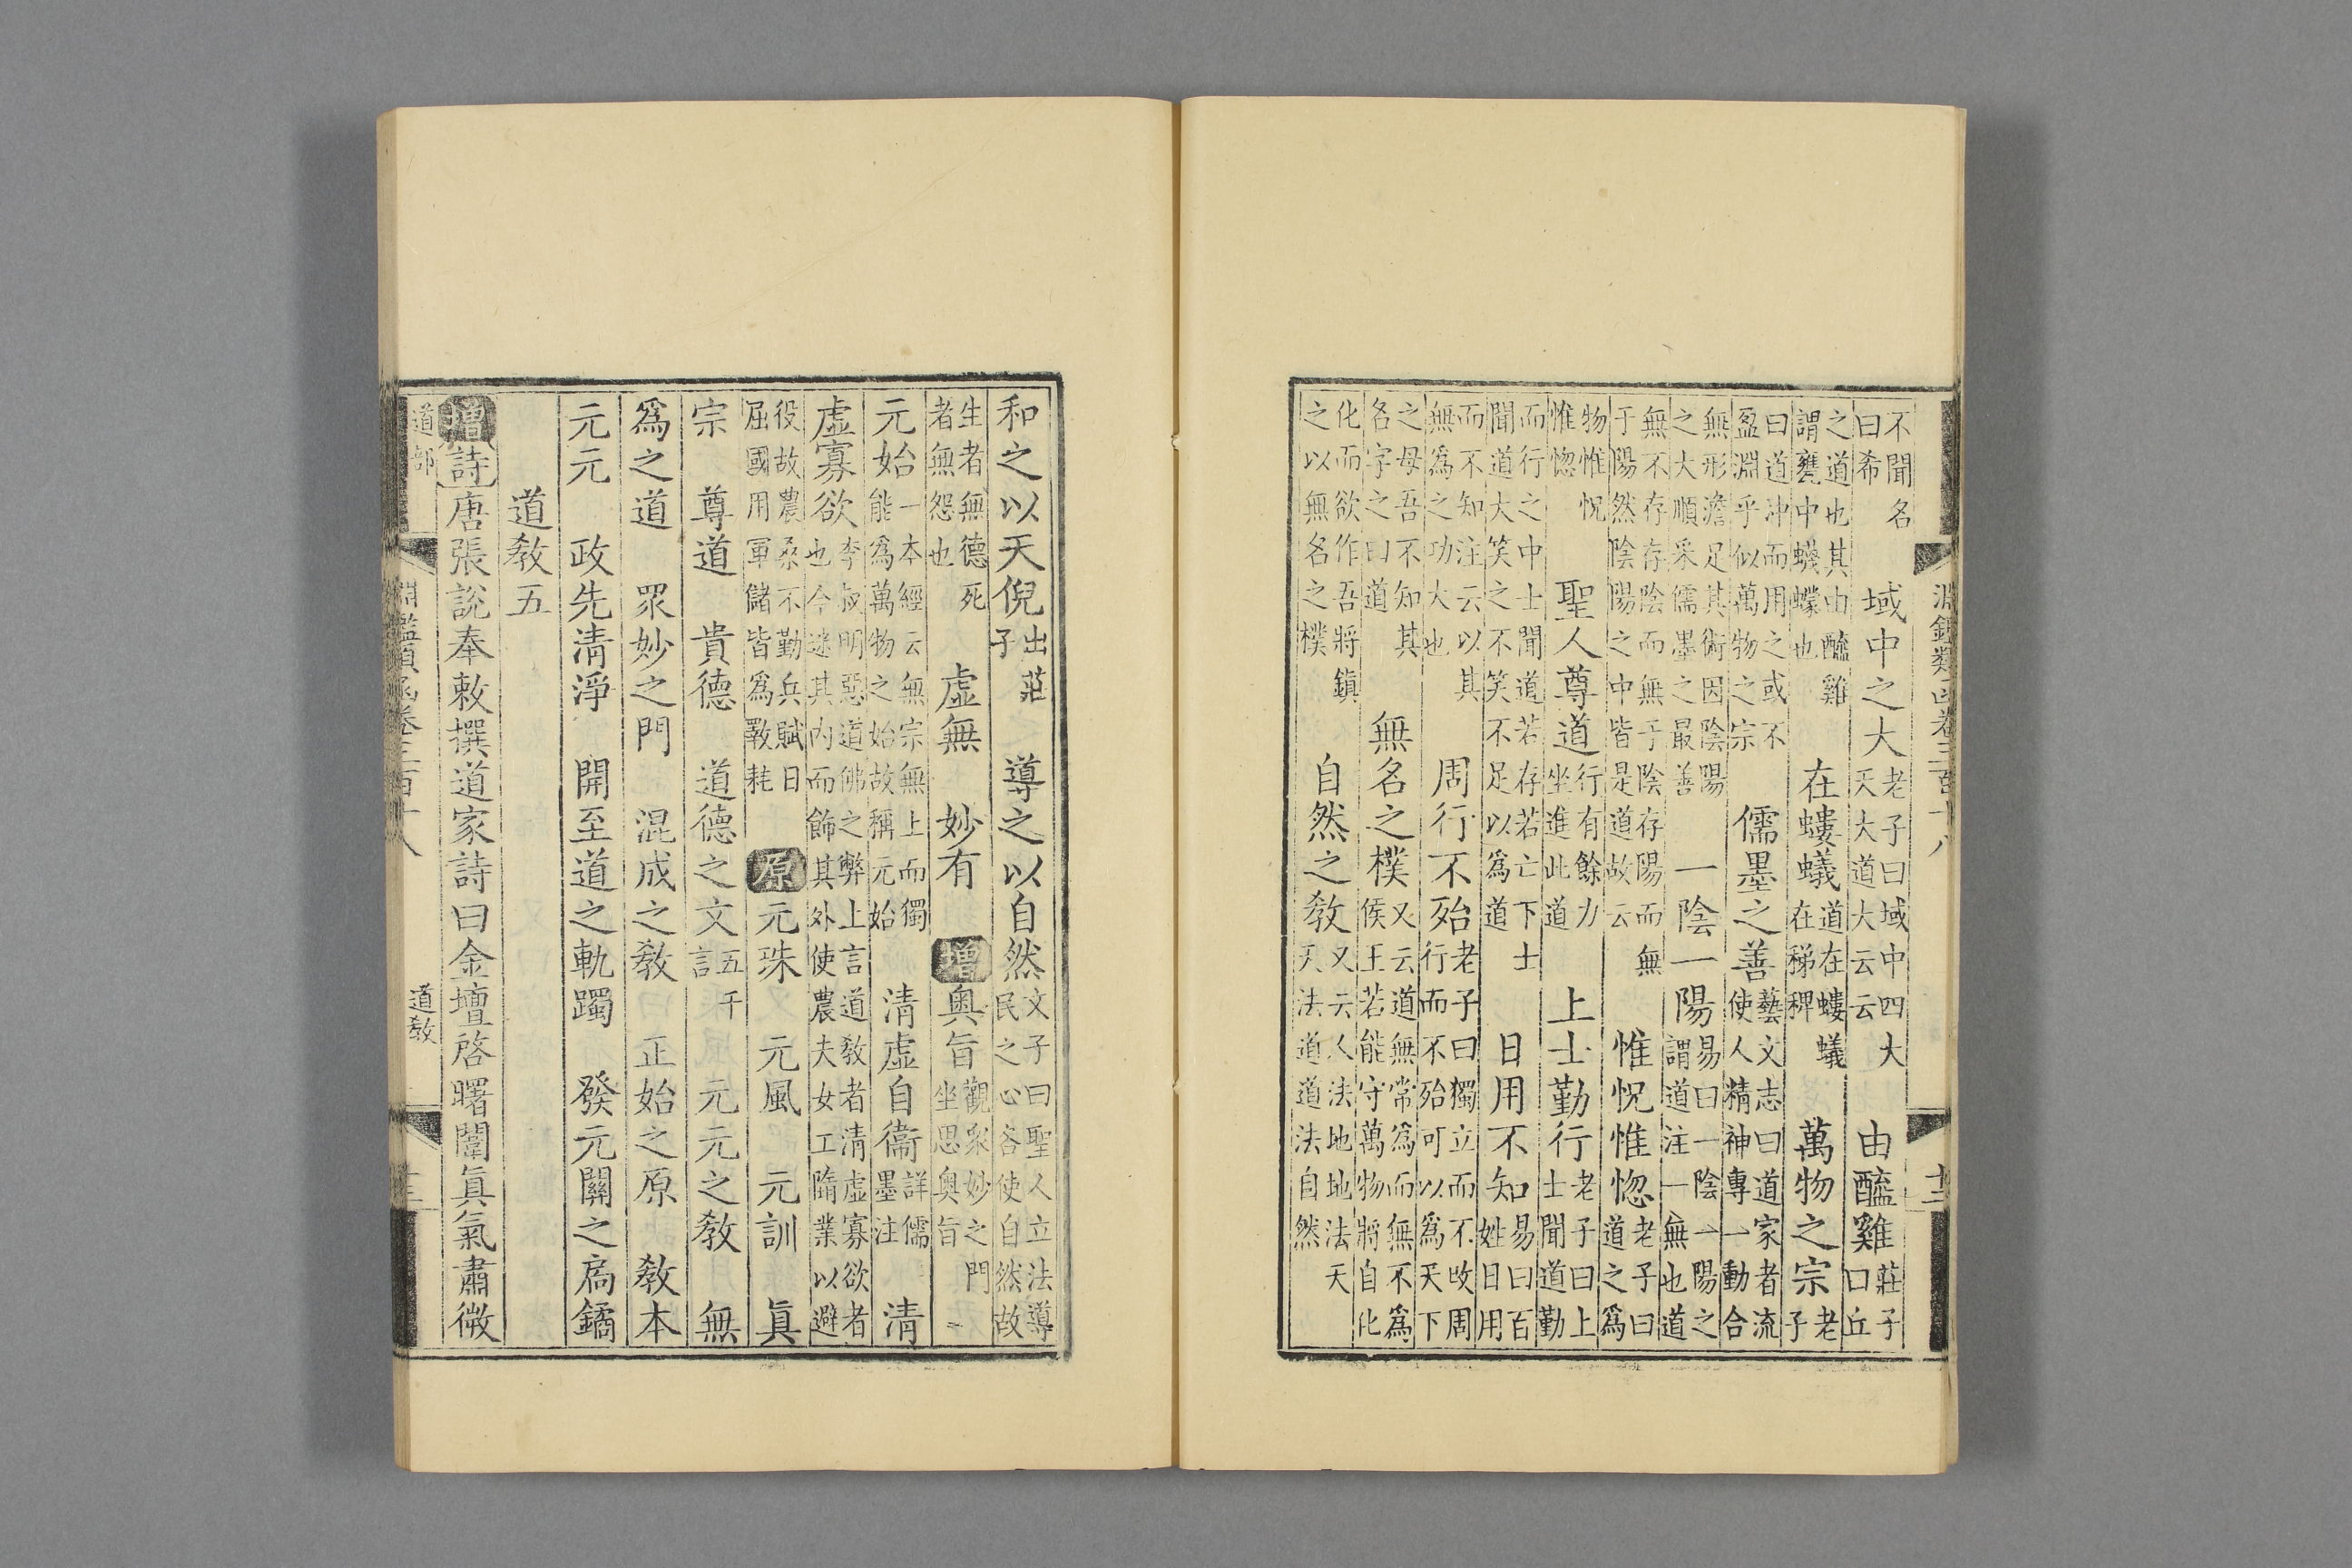 淵鑑類函卷三百十八　十三
不聞名曰希　域中之大老子曰域中四大天大道大云云　由醯雞莊子口丘
之道也其由醯雞謂甕中蠛蠓也　在螻蟻道在螻蟻在稊稗　萬物之宗老子
曰道沖而用之或不盈淵乎似萬物之宗　儒墨之善藝文志曰道家者流使人精神專一動合
無形澹足其術因陰陽之大順采儒墨之最善　一陰一陽易曰一陰一陽之謂道注一無也道
無不存存陰而無于陰存陽而無于陽然陰陽之中皆是道故云　惟怳惟惚老子曰道之爲
物惟怳惟惚　聖人尊道行有餘力坐進此道　上士勤行老子曰上士聞道勤
而行之中士聞道若存若亡下士聞道大笑之不笑不足以爲道　日用不知易曰百姓日用
而不知注云以其無爲之功大也　周行不殆老子曰獨立而不改周行而不殆可以爲天下
之母吾不知其名字之曰道　無名之樸又云道無常爲而無不爲侯王若能守萬物將自化
化而欲作吾將鎮之以無名之樸　自然之敎又云人法地地法天天法道道法自然
和之以天倪出莊子　導之以自然文子曰聖人立法導民之心各使自然故
生者無德死者無怨也　虛無　妙有　增奧旨觀衆妙之門坐思奧旨
元始一本經云無宗無上而獨能爲萬物之始故稱元始　清虛自衞詳儒墨注　清
虛寡欲李叔明惡道佛之弊上言道敎者清虛寡欲者也今迷其內而飾其外使農夫女工隳業以避
役故農桑不勤兵賦日屈國用軍儲皆爲斁耗　原元珠　元風　元訓　眞
宗　尊道　貴德　道德之文五千言　元元之敎　無
爲之道　眾妙之門　混成之敎　正始之原　敎本
元元　政先清淨　開至道之軌躅　發元關之扃鐍
道敎五
增詩唐張說奉敕撰道家詩曰金壇啓曙闈眞氣肅微
道部　淵鑑類函卷三百十八　道敎　十三